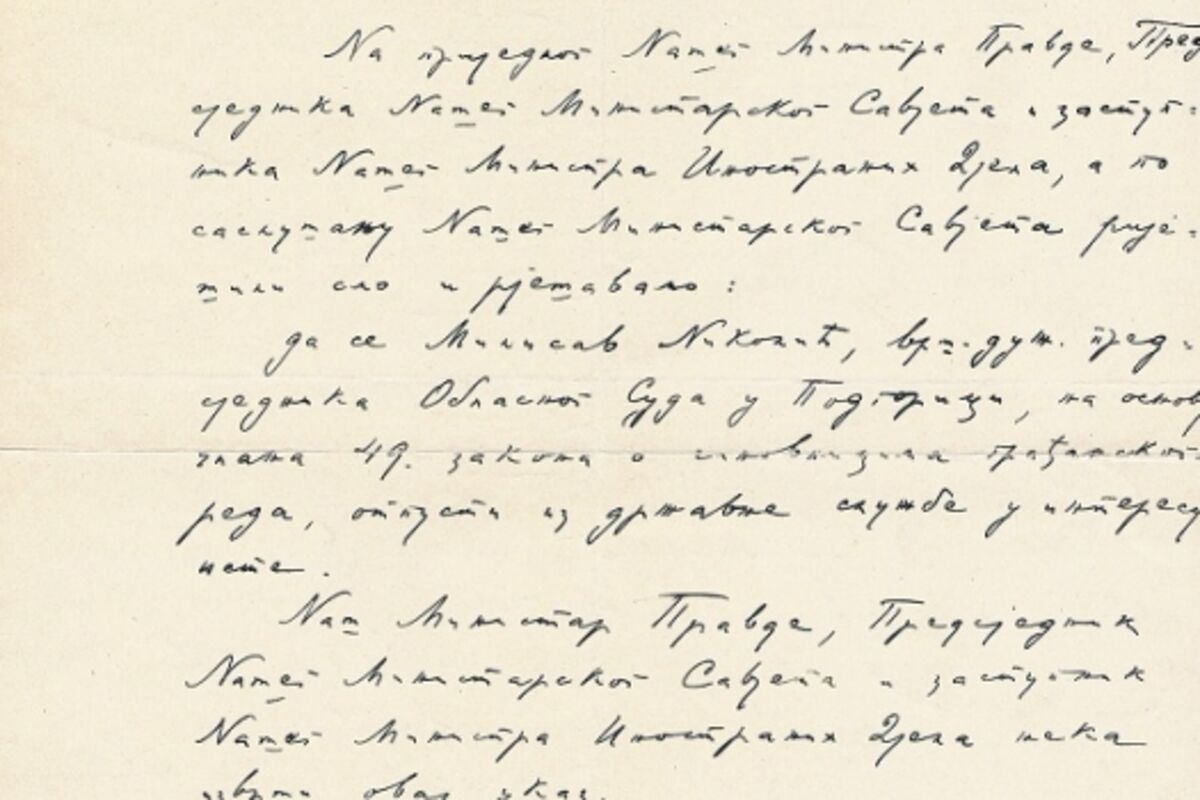 На приједлог Нашег Министра Правде, Пред
сједника Нашег Министарског Савјета и заступ-
ника Нашег Министра Иностраних Дјела, а по
саслушању Нашег Министарског Савјета ријe-
шили смо и рјешавамо:
да се Милисав Николић, врш. дуж. пред-
сједника Обласног Суда у Подгорици, на основу
члана 49. закона о чиновницима грађанског
реда, отпусти из државне службе у интересу
исте.
Наш Министар Правде, Предсједник
Нашег Министарског Савјета и заступник
Нашег Министра Иностраних Дјела нека
изврши овај указ.